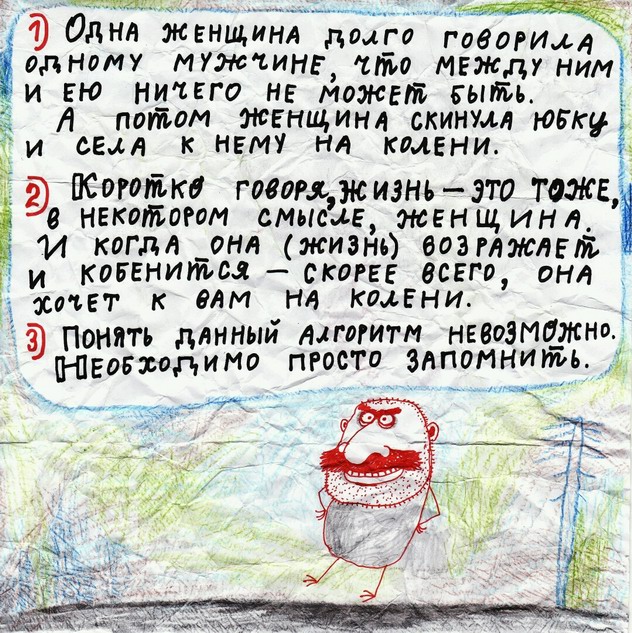 1) Одна женщина долго говорила
одному мужчине, что между ним
и ею ничего не может быть.
А потом женщина скинула юбку
и села к нему на колени.
2) Коротко говоря, жизнь — это тоже,
в некотором смысле, женщина.
И когда она (жизнь) возражает
и кобенится — скорее всего, она
хочет к вам на колени.
3) Понять данный алгоритм невозможно.
Необходимо просто запомнить.